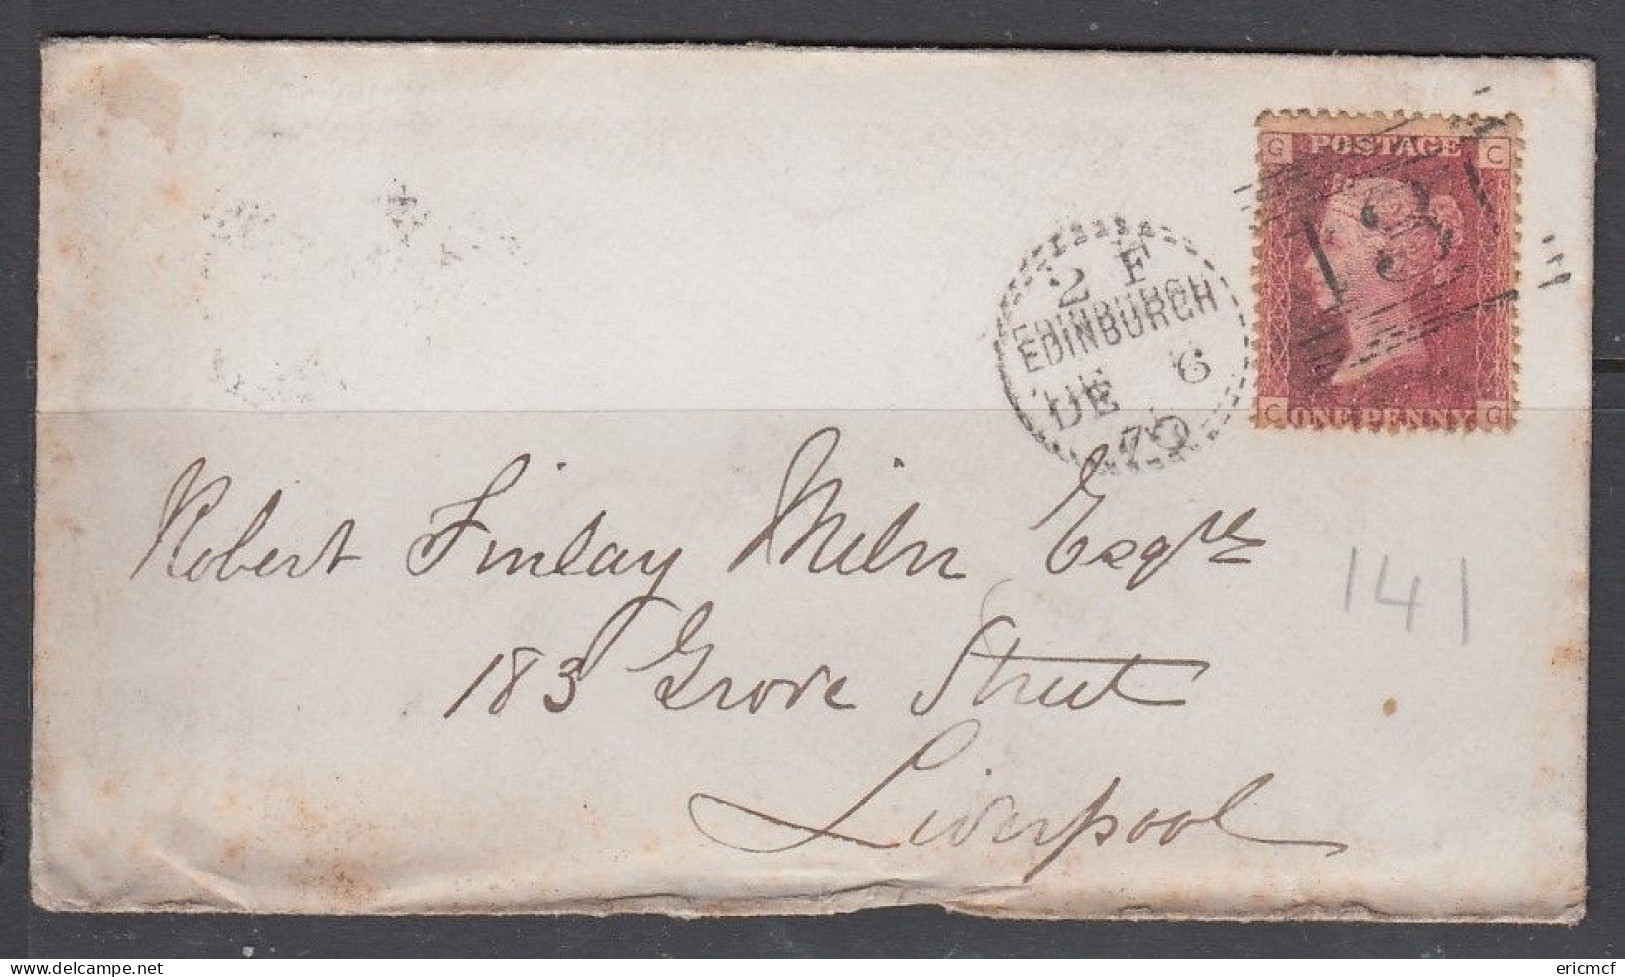 G POSTAGE C
131
C ONE PENNY G
2 F
EDINBURGH
EDINBURGH
DE 6
70
Robert Finlay Miln Esqre
183 Grove Street
Liverpool
141
delcampe.net
ericmcf